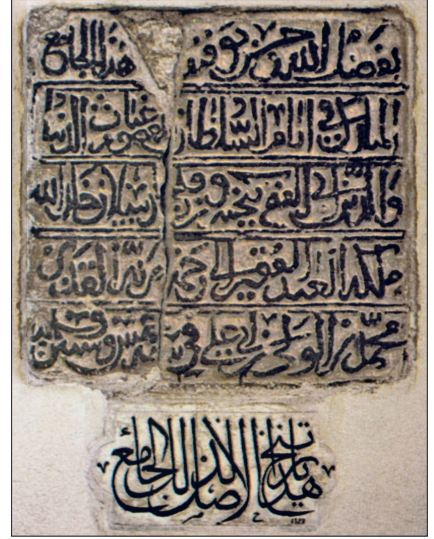 بفضل الله وحسن توفيقه هذا الجامع
المبارك في ايام السلطان غياث الدنيا
والدين ابي الفتح كيخسرو بن ارسلان خلد الله
ملكه العبد الفقير الى رحمة ربه القدير
محمد بن علي في سنة خمس وستين
هذا تاريخ الاصل لذلك الجامع